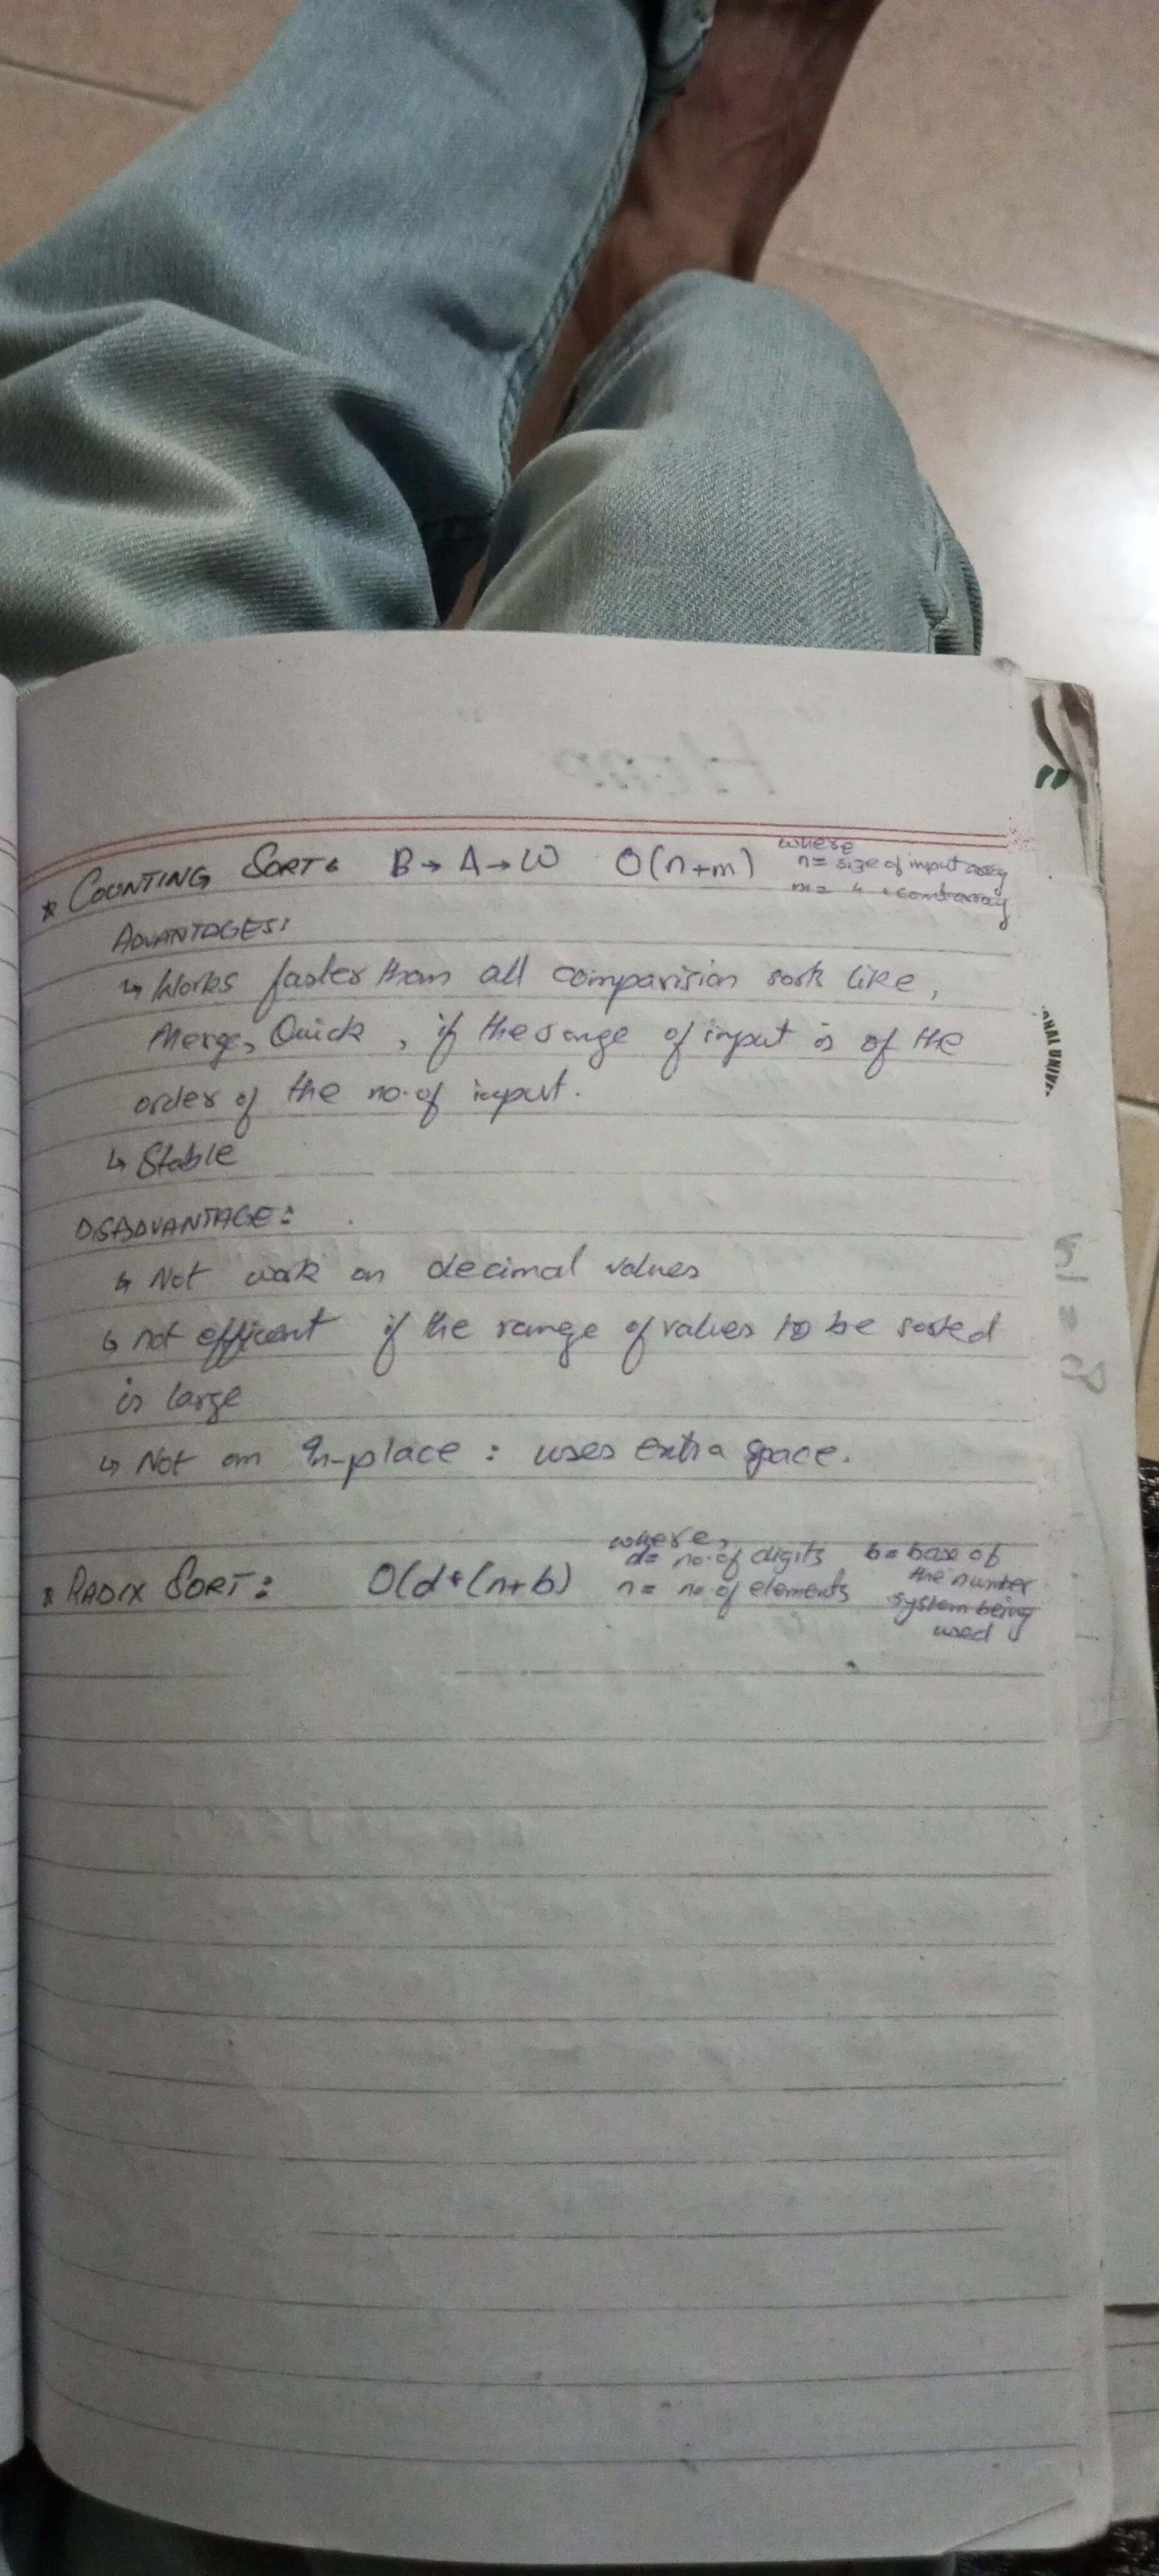 * COUNTING SORT: B → A → W O(n+m) where
n = size of input array
m = " " count array
ADVANTAGES:
↳ Works faster than all comparision sorts like,
Merge, Quick, if the range of input is of the
order of the no. of input.
↳ Stable
DISADVANTAGE:
↳ Not work on decimal values
↳ not efficent if the range of values to be sorted
is large
↳ Not an In-place : uses extra space.
* RADIX SORT: O(d*(n+b) where,
d = no. of digits
n = no of elements
b = base of
the number
system being
used